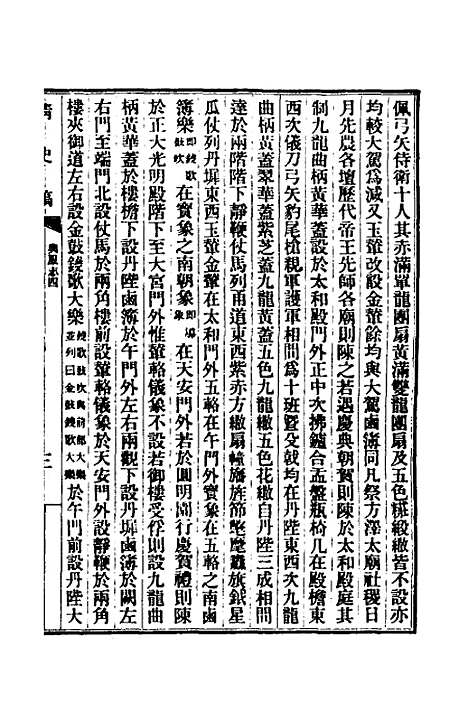 佩弓矢侍衛十人其赤滿單龍團扇黃滿雙龍團扇及五色粧緞繖皆不設亦
均較大駕爲減又玉輦改設金輦餘均與大駕鹵簿同凡祭方澤太廟社稷日
月先農各壇歷代帝王先師各廟則陳之若遇慶典朝賀則陳於太和殿庭其
制九龍曲柄黃華蓋設於太和殿門外正中次拂鑪合盂盤瓶椅几在殿檐東
西次儀刀弓矢豹尾槍親軍護軍相間爲十班暨殳戟均在丹陛東西次九龍
曲柄黃蓋翠華蓋紫芝蓋九龍黃蓋五色九龍繖五色花繖自丹陛三成相間
達於兩階階下靜鞭仗馬列甬道東西紫赤方繖扇幢旛旌節氅麾纛旗鉞星
瓜仗列丹墀東西玉輦金輦在太和門外五輅在午門外寶象在五輅之南鹵
簿樂卽鐃歌鼓吹在寶象之南朝象卽導象在天安門外若於圓明園行慶賀禮則陳
於正大光明殿階下至大宮門外惟輦輅儀象不設若御樓受俘則設九龍曲
柄黃華蓋於樓檐下設丹陛鹵簿於午門外左右兩觀下設丹墀鹵簿於闕左
右門至端門北設仗馬於兩角樓前設輦輅儀象於天安門外設靜鞭於兩角
樓夾御道左右設金鼓鐃歌大樂鐃歌鼓吹與前部大樂並列曰金鼓鐃歌大樂於午門前設丹陛大
清史稿
輿服志四
三